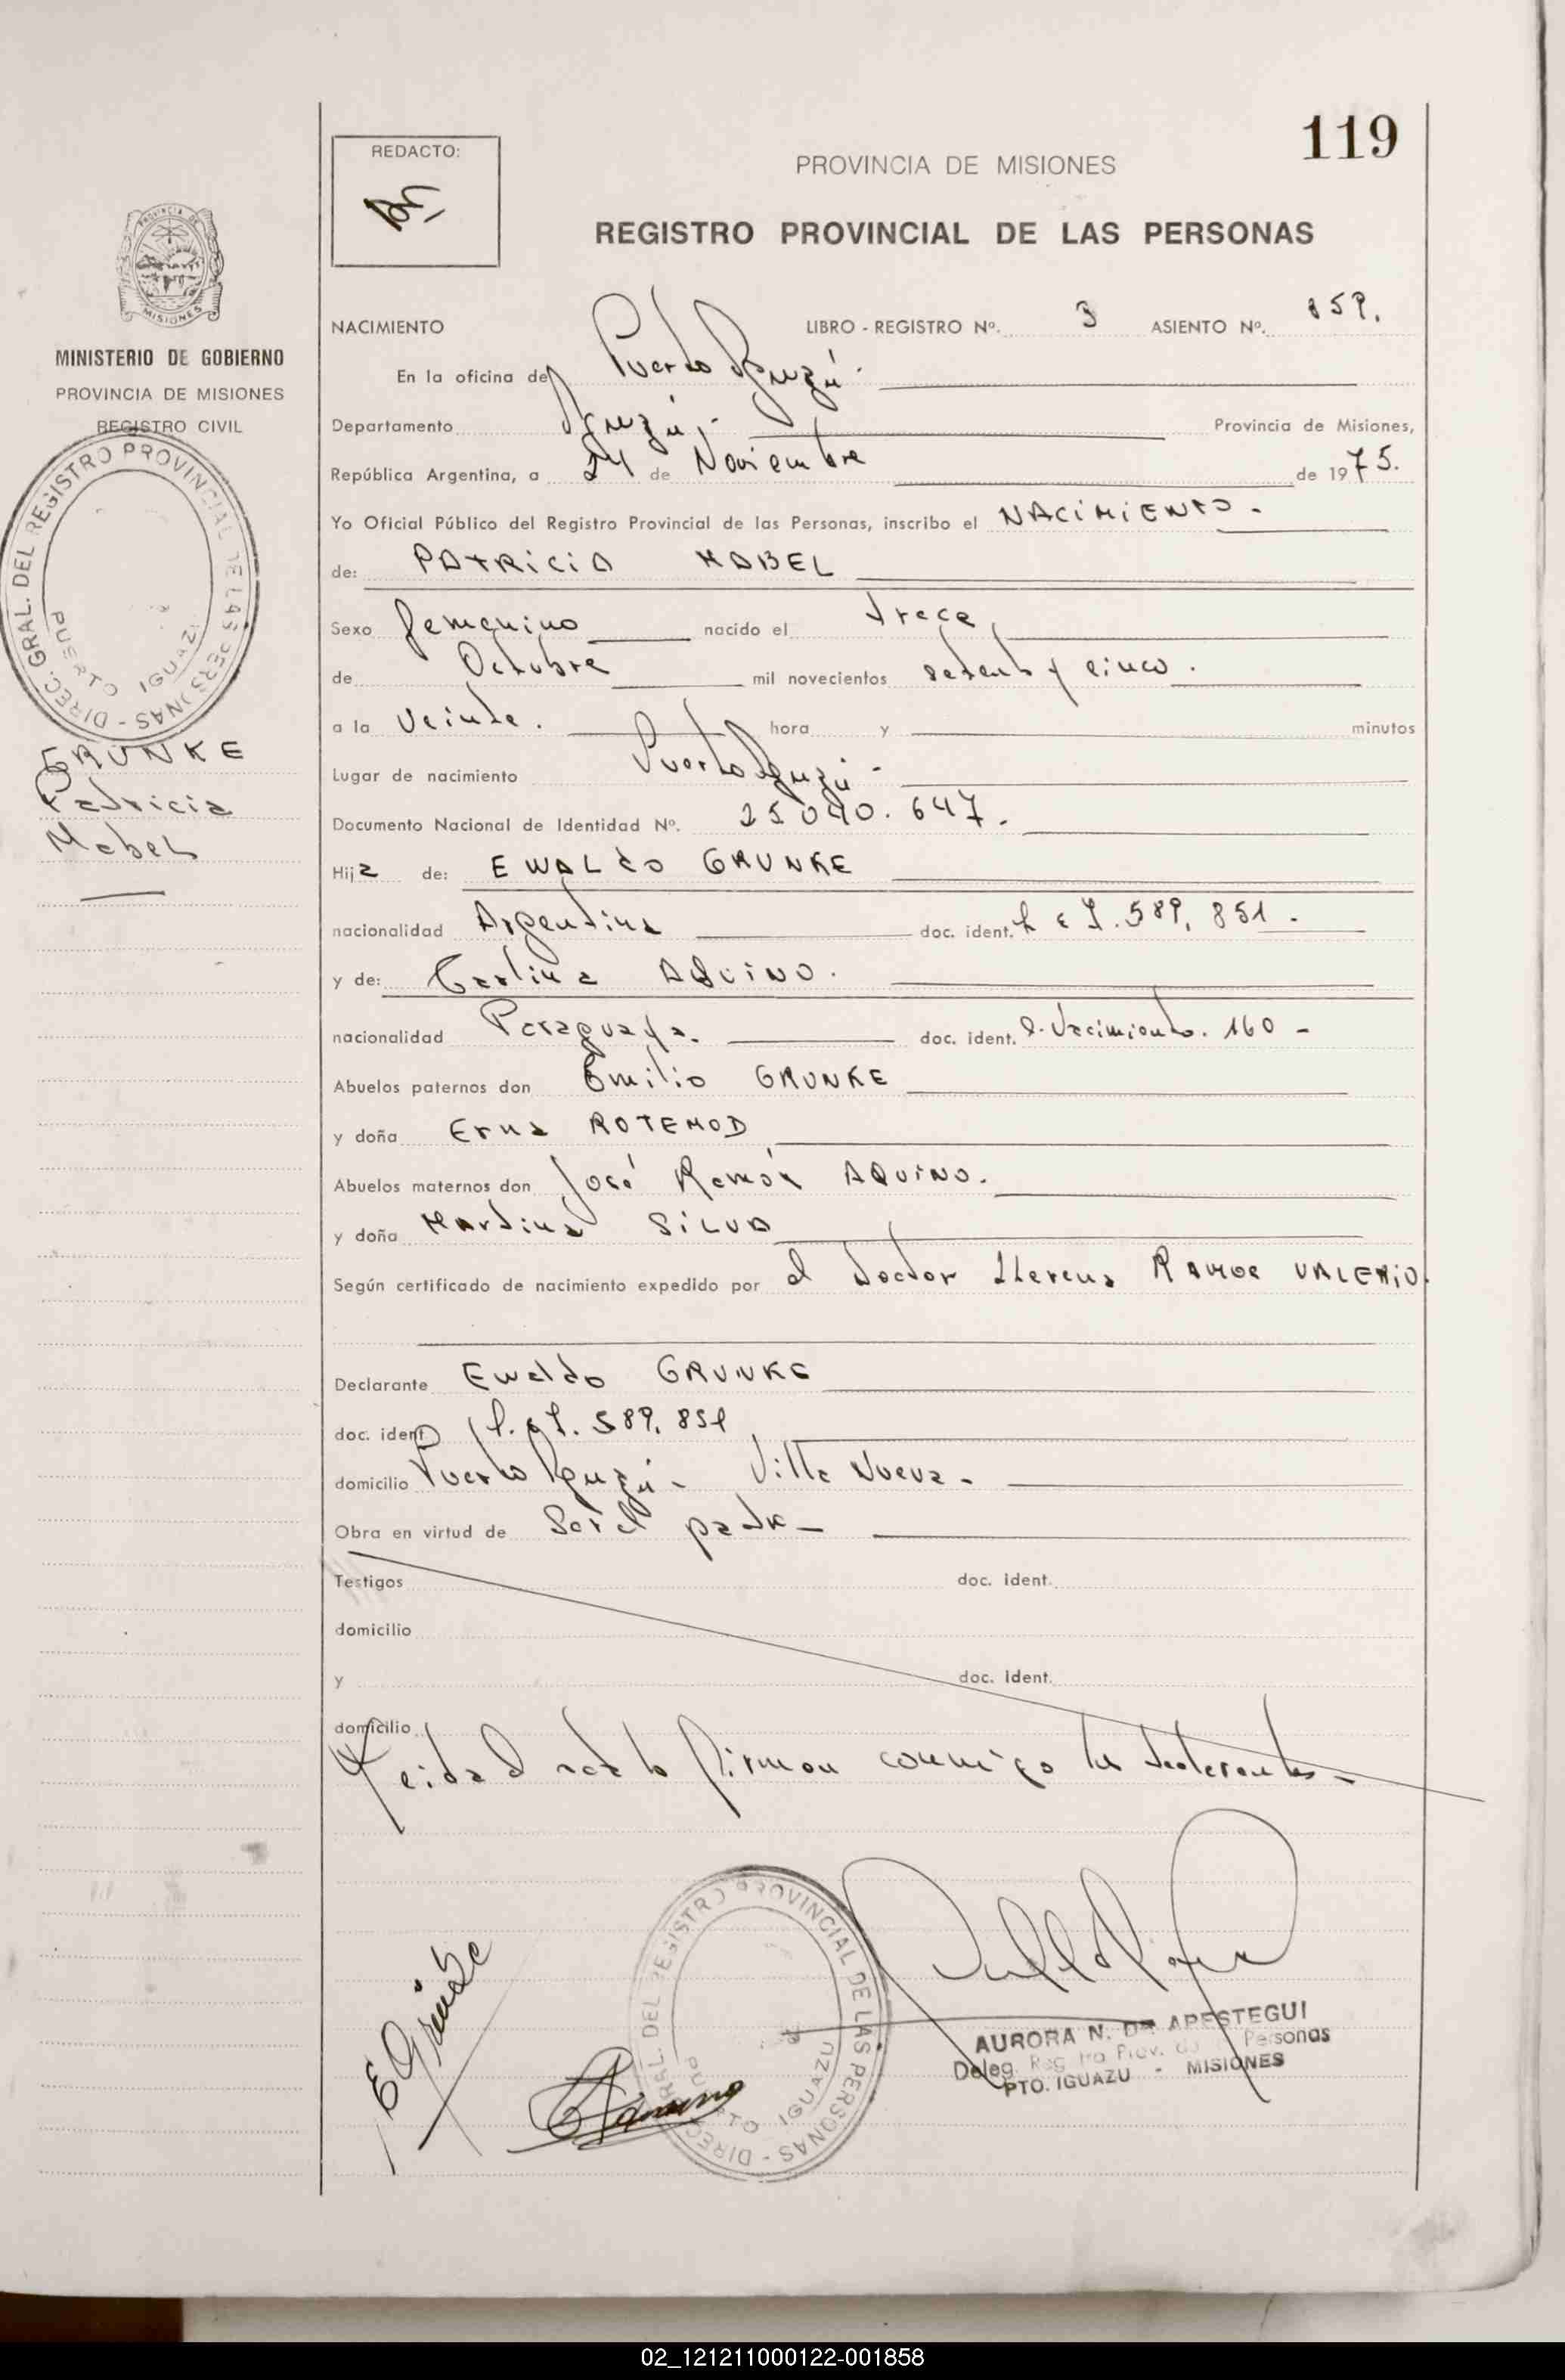 119
REDACTO:
PROVINCIA DE MISIONES
REGISTRO PROVINCIAL DE LAS PERSONAS
PROVINCIA DE
MISIONES
MINISTERIO DE GOBIERNO
PROVINCIA DE MISIONES
REGISTRO CIVIL
DIREC. GRAL. DEL REGISTRO PROVINCIAL DE LAS PERSONAS -
PUERTO IGUAZU
GRUNKE
Patricia
Mabel
NACIMIENTO LIBRO - REGISTRO Nº. 3 ASIENTO Nº. 859.
En la oficina de Puerto Iguazú.
Departamento Iguazú. Provincia de Misiones,
República Argentina, a 24 de Noviembre de 1975.
Yo Oficial Público del Registro Provincial de las Personas, inscribo el NACIMIENTO.
de: PATRICIA MABEL
Sexo femenino nacido el trece
de Octubre mil novecientos setenta y cinco.
a la veinte. hora y minutos
Lugar de nacimiento Puerto Iguazú -
Documento Nacional de Identidad Nº. 25.040.647.
Hija de: EWALdo GRUNKE
nacionalidad Argentina doc. ident. 589.851.
y de: AQUINO.
nacionalidad Paraguaya. doc. ident. Nacimiento. 160 -
Abuelos paternos don Emilio GRUNKE
y doña Erna ROTEMOD
Abuelos maternos don José Ramón AQUINO.
y doña Martina SILVA
Según certificado de nacimiento expedido por el Doctor Llerena VALERIO.
Declarante Ewaldo GRUNKE
doc. ident 589.851
domicilio Puerto Iguazú - Villa Nueva -
Obra en virtud de Ser el padre -
Testigos doc. ident.
domicilio
y doc. ident.
domicilio
Leida el acta la firman conmigo los declarantes -
DIREC. GRAL. DEL REGISTRO PROVINCIAL DE LAS PERSONAS -
PUERTO IGUAZU
E Grünke
AURORA N. DE APESTEGUI
Deleg. Registro Prov. de Personas
PTO. IGUAZU - MISIONES
02_121211000122-001858